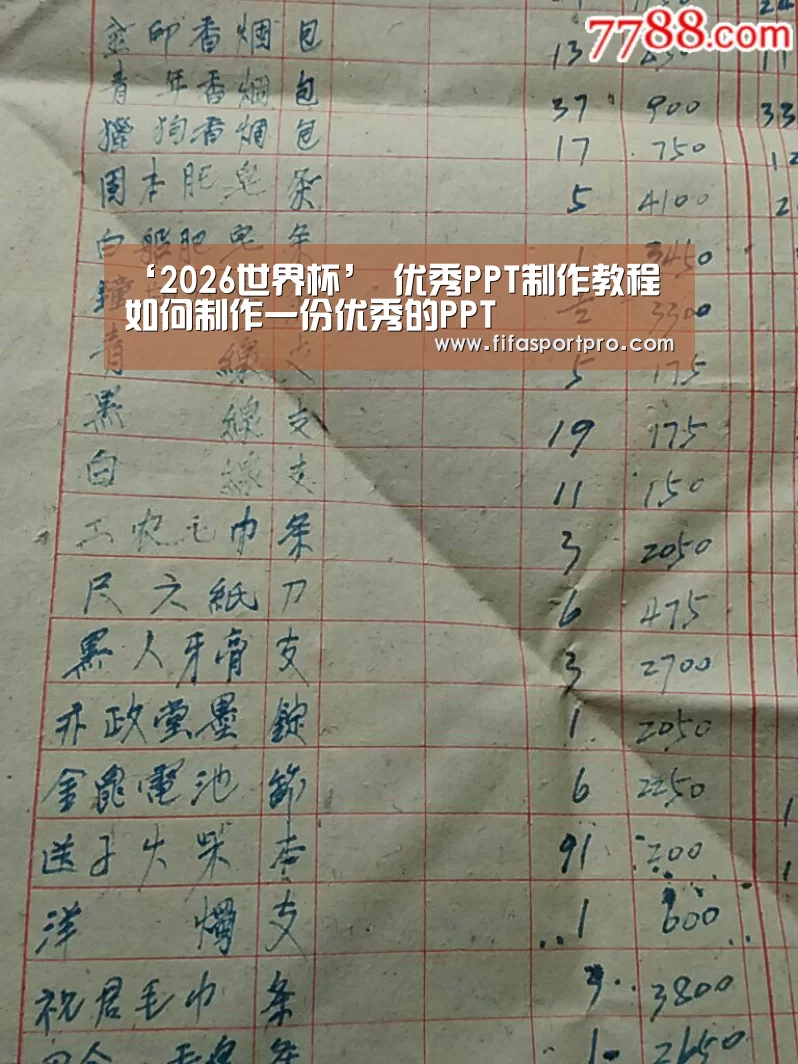 7788.com
金印香烟 包 13 450 11
青年香烟 包 37 900 33
獵狗香烟 包 17 750 12
固本肥皂 条 5 4100 2
白船肥皂 条 1 3450
鐘 3300
‘2026世界杯’ 优秀PPT制作教程
如何制作一份优秀的PPT
www.fifasportpro.com
青線 支 5 175
黑線 支 19 175
白線 支 11 150
工农毛巾 条 3 2050
尺六紙 刀 6 475
黑人牙膏 支 3 2700
政堂墨 錠 1 2050
金龟電池 節 6 2250 1
送子火柴 91 200 1
洋燭 支 1 600
祝君毛巾 条 3800
条 1 2650